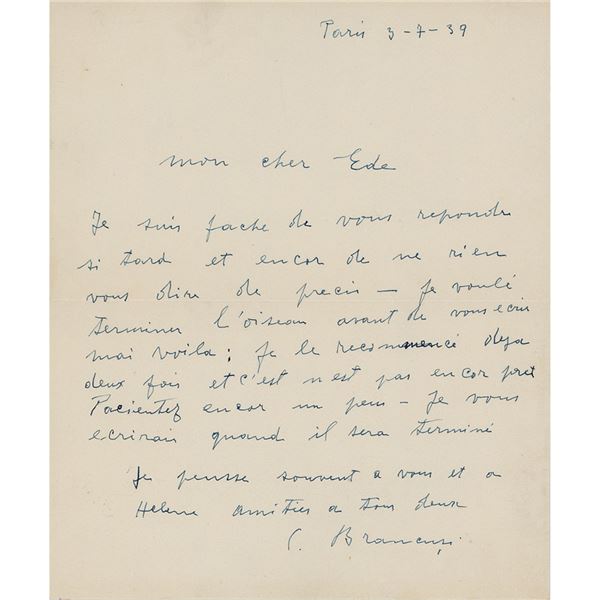 Paris 3-7-39
mon cher Ede
Je suis faché de vous repondre
si tard et encor de ne rien
vous dire de precis — Je voulé
terminer l'oiseau avant de vous ecrir
mai voila; Je le recommencé deja
deux fois et c'est n'est pas encor pret
Pacientez encor un peu — Je vous
ecrirai quand il sera terminé
Je pensse souvent a vous et a
Helene amitiés a tous deux
C. Brancusi